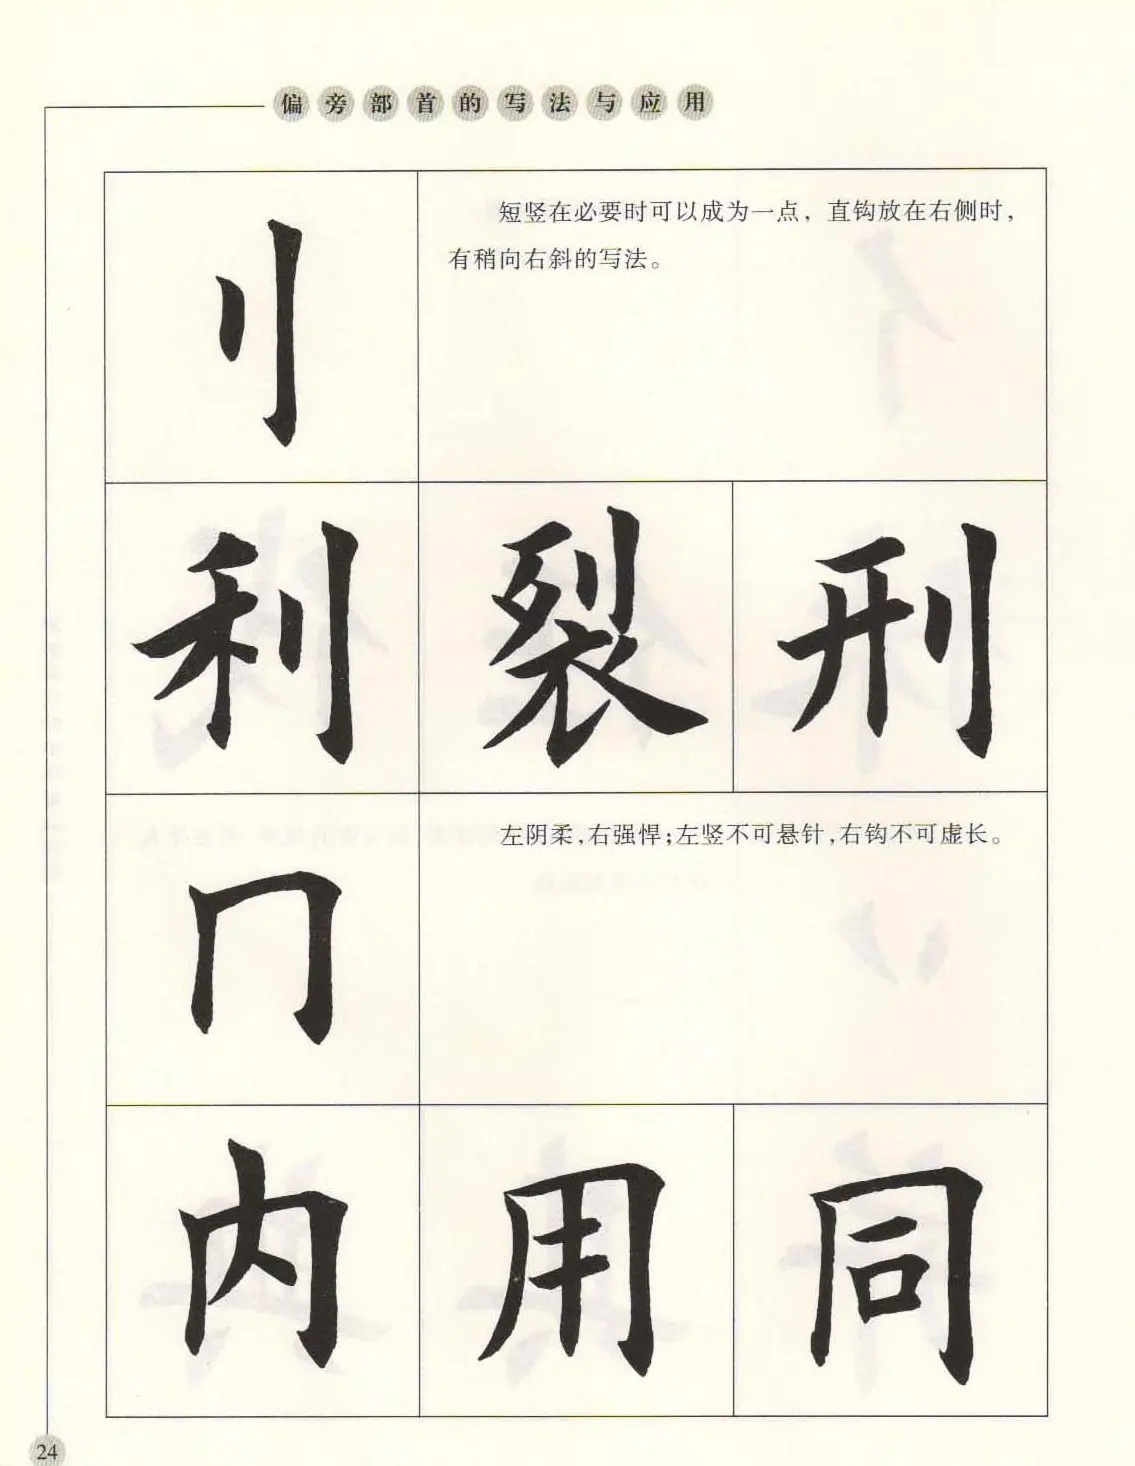 偏旁部首的写法与应用
刂
短竖在必要时可以成为一点，直钩放在右侧时，
有稍向右斜的写法。
利 裂 刑
冂
左阴柔，右强悍；左竖不可悬针，右钩不可虚长。
内 用 同
24